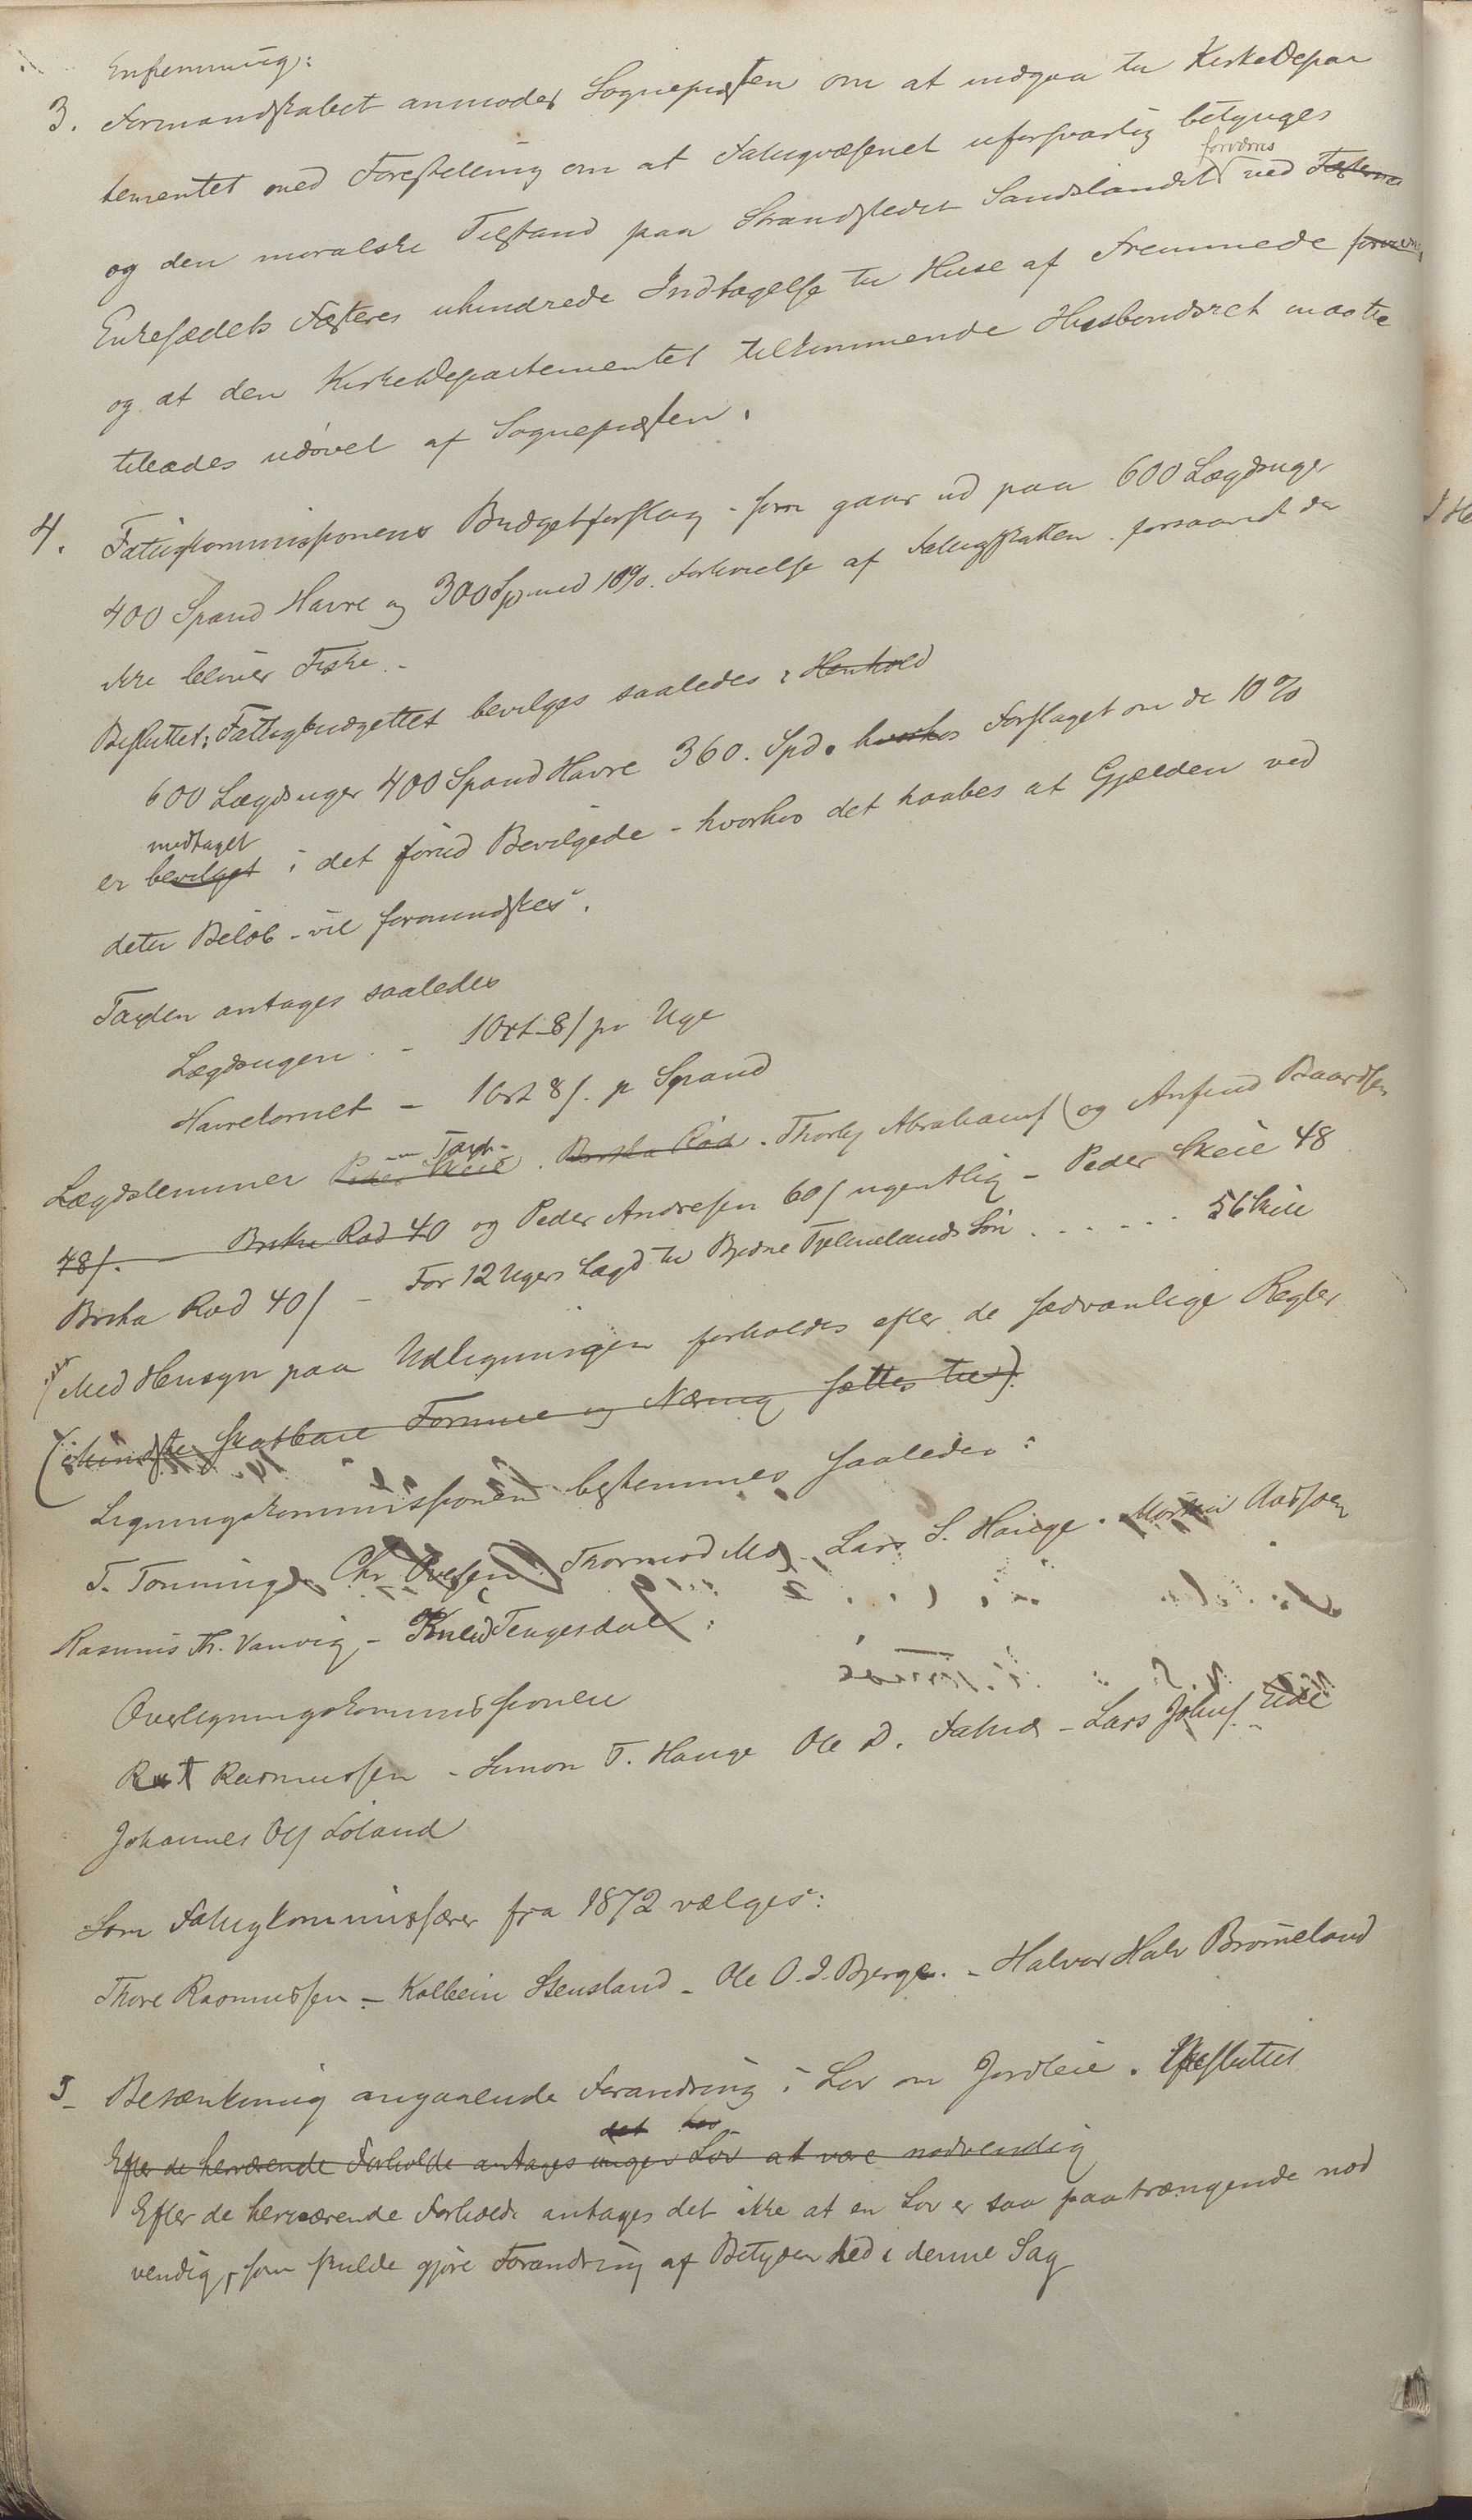 3. Formandskabet anmoder Sognepræsten om at indgaa til Kirkedepar
tementet med Forestilling om at Fatigvæsenet uforsvarlig betynges
og den moralske Tilstand paa Strandstedet Sandslandet forværres ved Fæsterne
Enkesædets Fæsteres uhindrede Indtagelse til Huse af Fremmede forværres
og at den Kirkedepartementet tilkommende Husbondsret maatte
tillades udøvet af Sognepræsten.
4. Fatigkommissionens Budgetforslag - som gaar ud paa 600 Lægdsuger
400 Spand Havre og 300 Spd med 10%. Forhøielse af Fatigskatten forsaavidt der
ikke bliver Fiske -
Besluttet: Fattigbudgettet bevilges saaledes : Henhold
600 Lægdsuger 400 Spand Havre 360. Spd. hvorhos Forslaget om de 10%
medtaget
er bevilget i det forud Bevilgede - hvorhos det haabes at Gjælden ved
dette Beløb - vil formindskes.
Taxten antages saaledes
Lægdsugen - 1 Ort 8/ pr Uge
Havrekornet - 1 Ort 8/. pr Spand
Lægdslemmer Peder Skeie. Borkha Rad. Thorbj Abrahams og Arfind Baardsen
48/. Borka Rad 40 og Peder Andresen 60/ ugentlig - Peder Skeie 48
Borka Rad 40/ - For 12 Ugers Lægd til Bjedne Fjelnelands Søn . . . . . 56 Skill
Med Hensyn paa Udligningen forholdes efter de sædvanlige Regler
(mindste skatbare Formue og Næring sættes til).
Ligningskommissionen bestemmes saaledes :
T. Tonning - Chr Ovesen - Thormod Mo - Lars S. Hauge. Morten Aadsen
Rasmus Th. Vanvig - Knud Tengesdal
Overligningskommissionen
Rasmussen - Simon T. Hauge Ole D. - Lars Johns. Eide
Johannes Ols Løland
Som Fatigkommissærer fra 1872 vælges:
Thore Rasmussen - Kolbein Stensland - Ole O. I. Bjerge. - Halvor Halv Brommeland
5 Betænkning angaaende Forandring i Lov om Jordleie. Besluttet
det
Efter de herværende Forholde antages ingen Lov at være nødvendig
Efter de herværende Forholde antages det ikke at en Lov er saa paatrængende nød
vendig, som skulde gjøre Forandring af Betydenhed i denne Sag